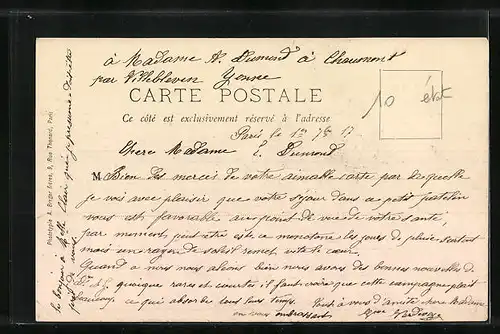 à Madame A. Dumond à Chaumont
par Villebleven Yonne
CARTE POSTALE
Ce côté est exclusivement réservé à l'adresse
10 état
Paris le 1er 7bre 17
Chère Madame E. Dumond
M Bien des mercis de votre aimable carte par laquelle
je vois avec plaisir que votre séjour dans ce petit patelin
vous est favorable au point de vue de votre santé,
par moment peut être est ce monotone les jours de pluie surtout
mais un rayon de soleil remet vite le cœur.
Quand a nous nous allons bien nous avons des bonnes nouvelles de
quoique rares et courtes il faut croire que cette campagne plait
beaucoup ce qui absorbe tout leur temps. Tout à vous d'amitié chère Madame
en vous embrassant
Phototypie A. Berger frères, 9, Rue Thénard, Paris
le bonjour à Melle Clair que je présume